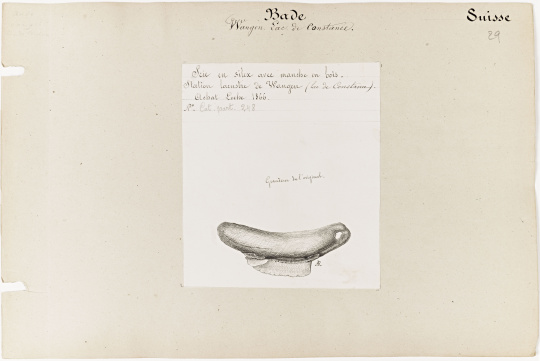 Bade
Suisse
Wangen Lac de Constance.
29
Scie en silex avec manche en bois.
Station lacustre de Wangen (Lac de Constance).
Achat 1866.
N° Cat. 208
Grandeur de l'original.